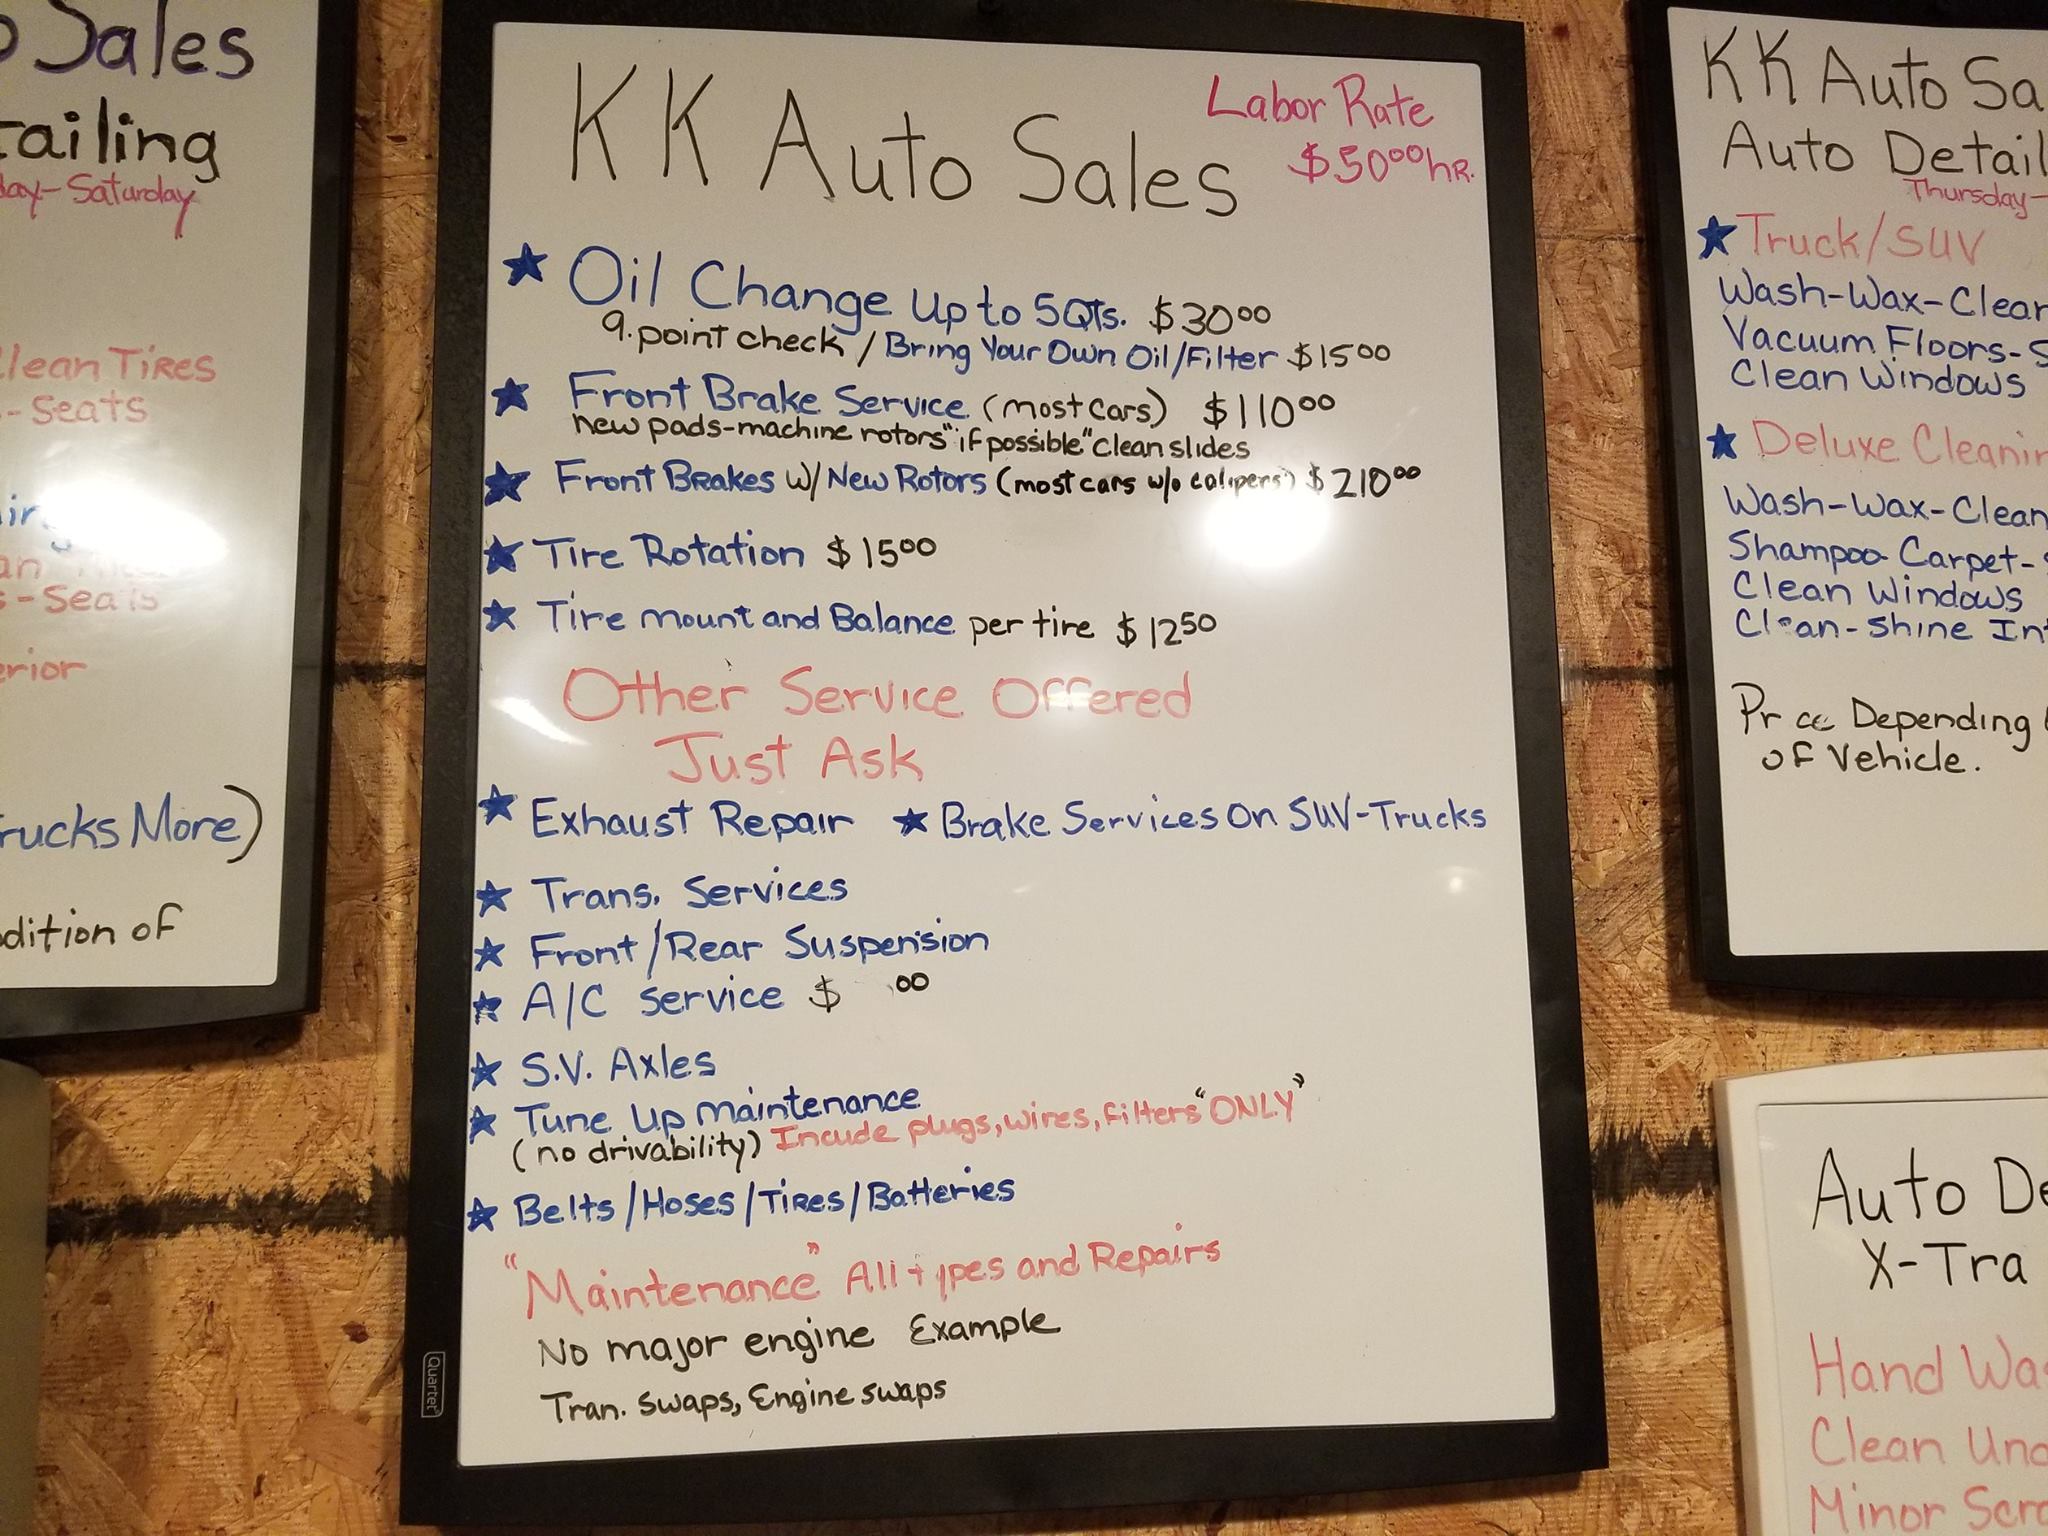 Sales
tailing
day-Saturday
Clean Tires
-Seats
-Seats
erior
rucks More)
dition of
KK Auto Sales
Labor Rate
$50.00 hr.
★ Oil Change Up to 5Qts. $30.00
9. point check / Bring Your Own Oil/Filter $15.00
★ Front Brake Service (most cars) $110.00
new pads-machine rotors "if possible" clean slides
★ Front Brakes w/ New Rotors (most cars w/o calipers) $210.00
★ Tire Rotation $15.00
★ Tire mount and Balance per tire $12.50
Other Service Offered
Just Ask
★ Exhaust Repair ★ Brake Services On SUV-Trucks
★ Trans. Services
★ Front/Rear Suspension
★ A/C service $ .00
★ S.V. Axles
★ Tune Up maintenance
(no drivability) Incude plugs, wires, filters "ONLY"
★ Belts/Hoses/Tires/Batteries
"Maintenance" All types and Repairs
No major engine Example
Tran. swaps, Engine swaps
Quartet
KK Auto Sa
Auto Detail
Thursday-
★ Truck/SUV
Wash-Wax-Clean
Vacuum Floors-S
Clean Windows
★ Deluxe Cleanin
Wash-Wax-Clean
Shampoo Carpet-S
Clean Windows
Clean-Shine Int
Price Depending
of Vehicle.
Auto De
X-Tra
Hand Was
Clean Und
Minor Scra